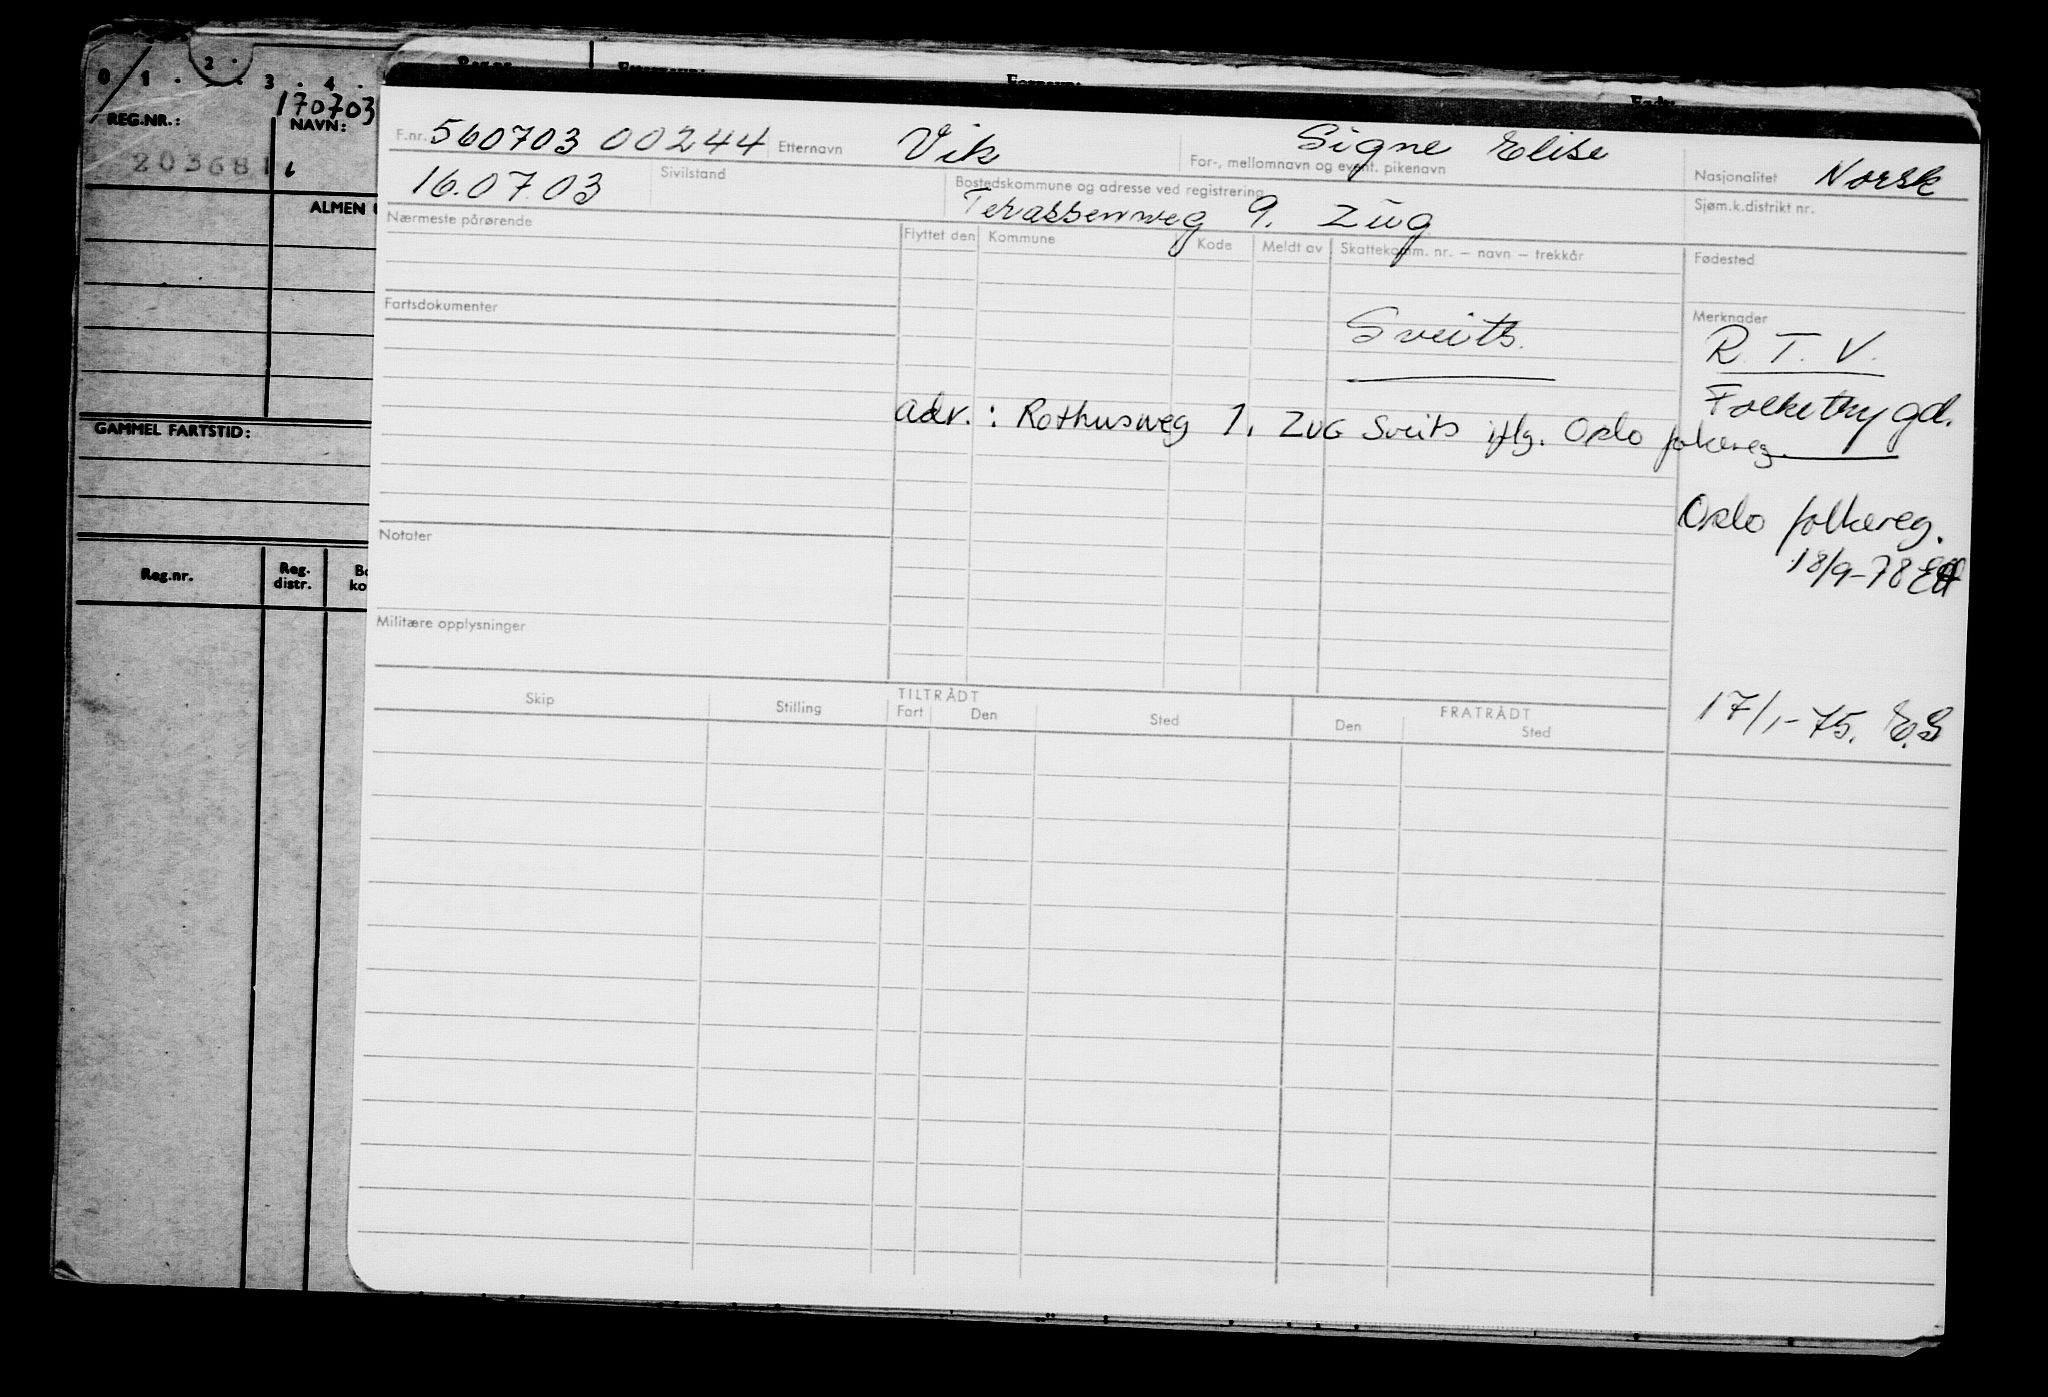 0 1 . 2 . . 3 . 4 .
170703
REG.NR.: NAVN:
203681
ALMEN
GAMMEL FARTSTID:
Reg.nr. Reg. distr.
F.nr. 560703 00244 Etternavn Vik Signe Elise
For-, mellomnavn og event. pikenavn
Nasjonalitet Norsk
16.07.03 Sivilstand Bostedskommune og adresse ved registrering
Terassenweg 9. Zug
Sjøm.k.distrikt nr.
Nærmeste pårørende Flyttet den Kommune Kode Meldt av Skattekomm. nr. – navn – trekkår Fødested
Fartsdokumenter Sveits. Merknader
R. T. V.
Folketrygd.
adr.: Rothusweg 1. ZUG Sveits iflg. Oslo folkereg.
Oslo folkereg.
18/9-78
Notater
Militære opplysninger
17/1-75. E.S
TILTRÅDT FRATRÅDT
Skip Stilling Fart Den Sted Den Sted